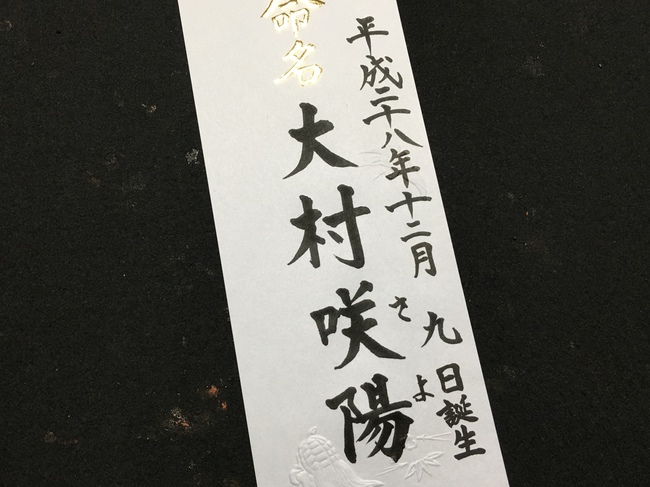 平成二十八年十二月九日誕生
命名
大村咲陽
さよ